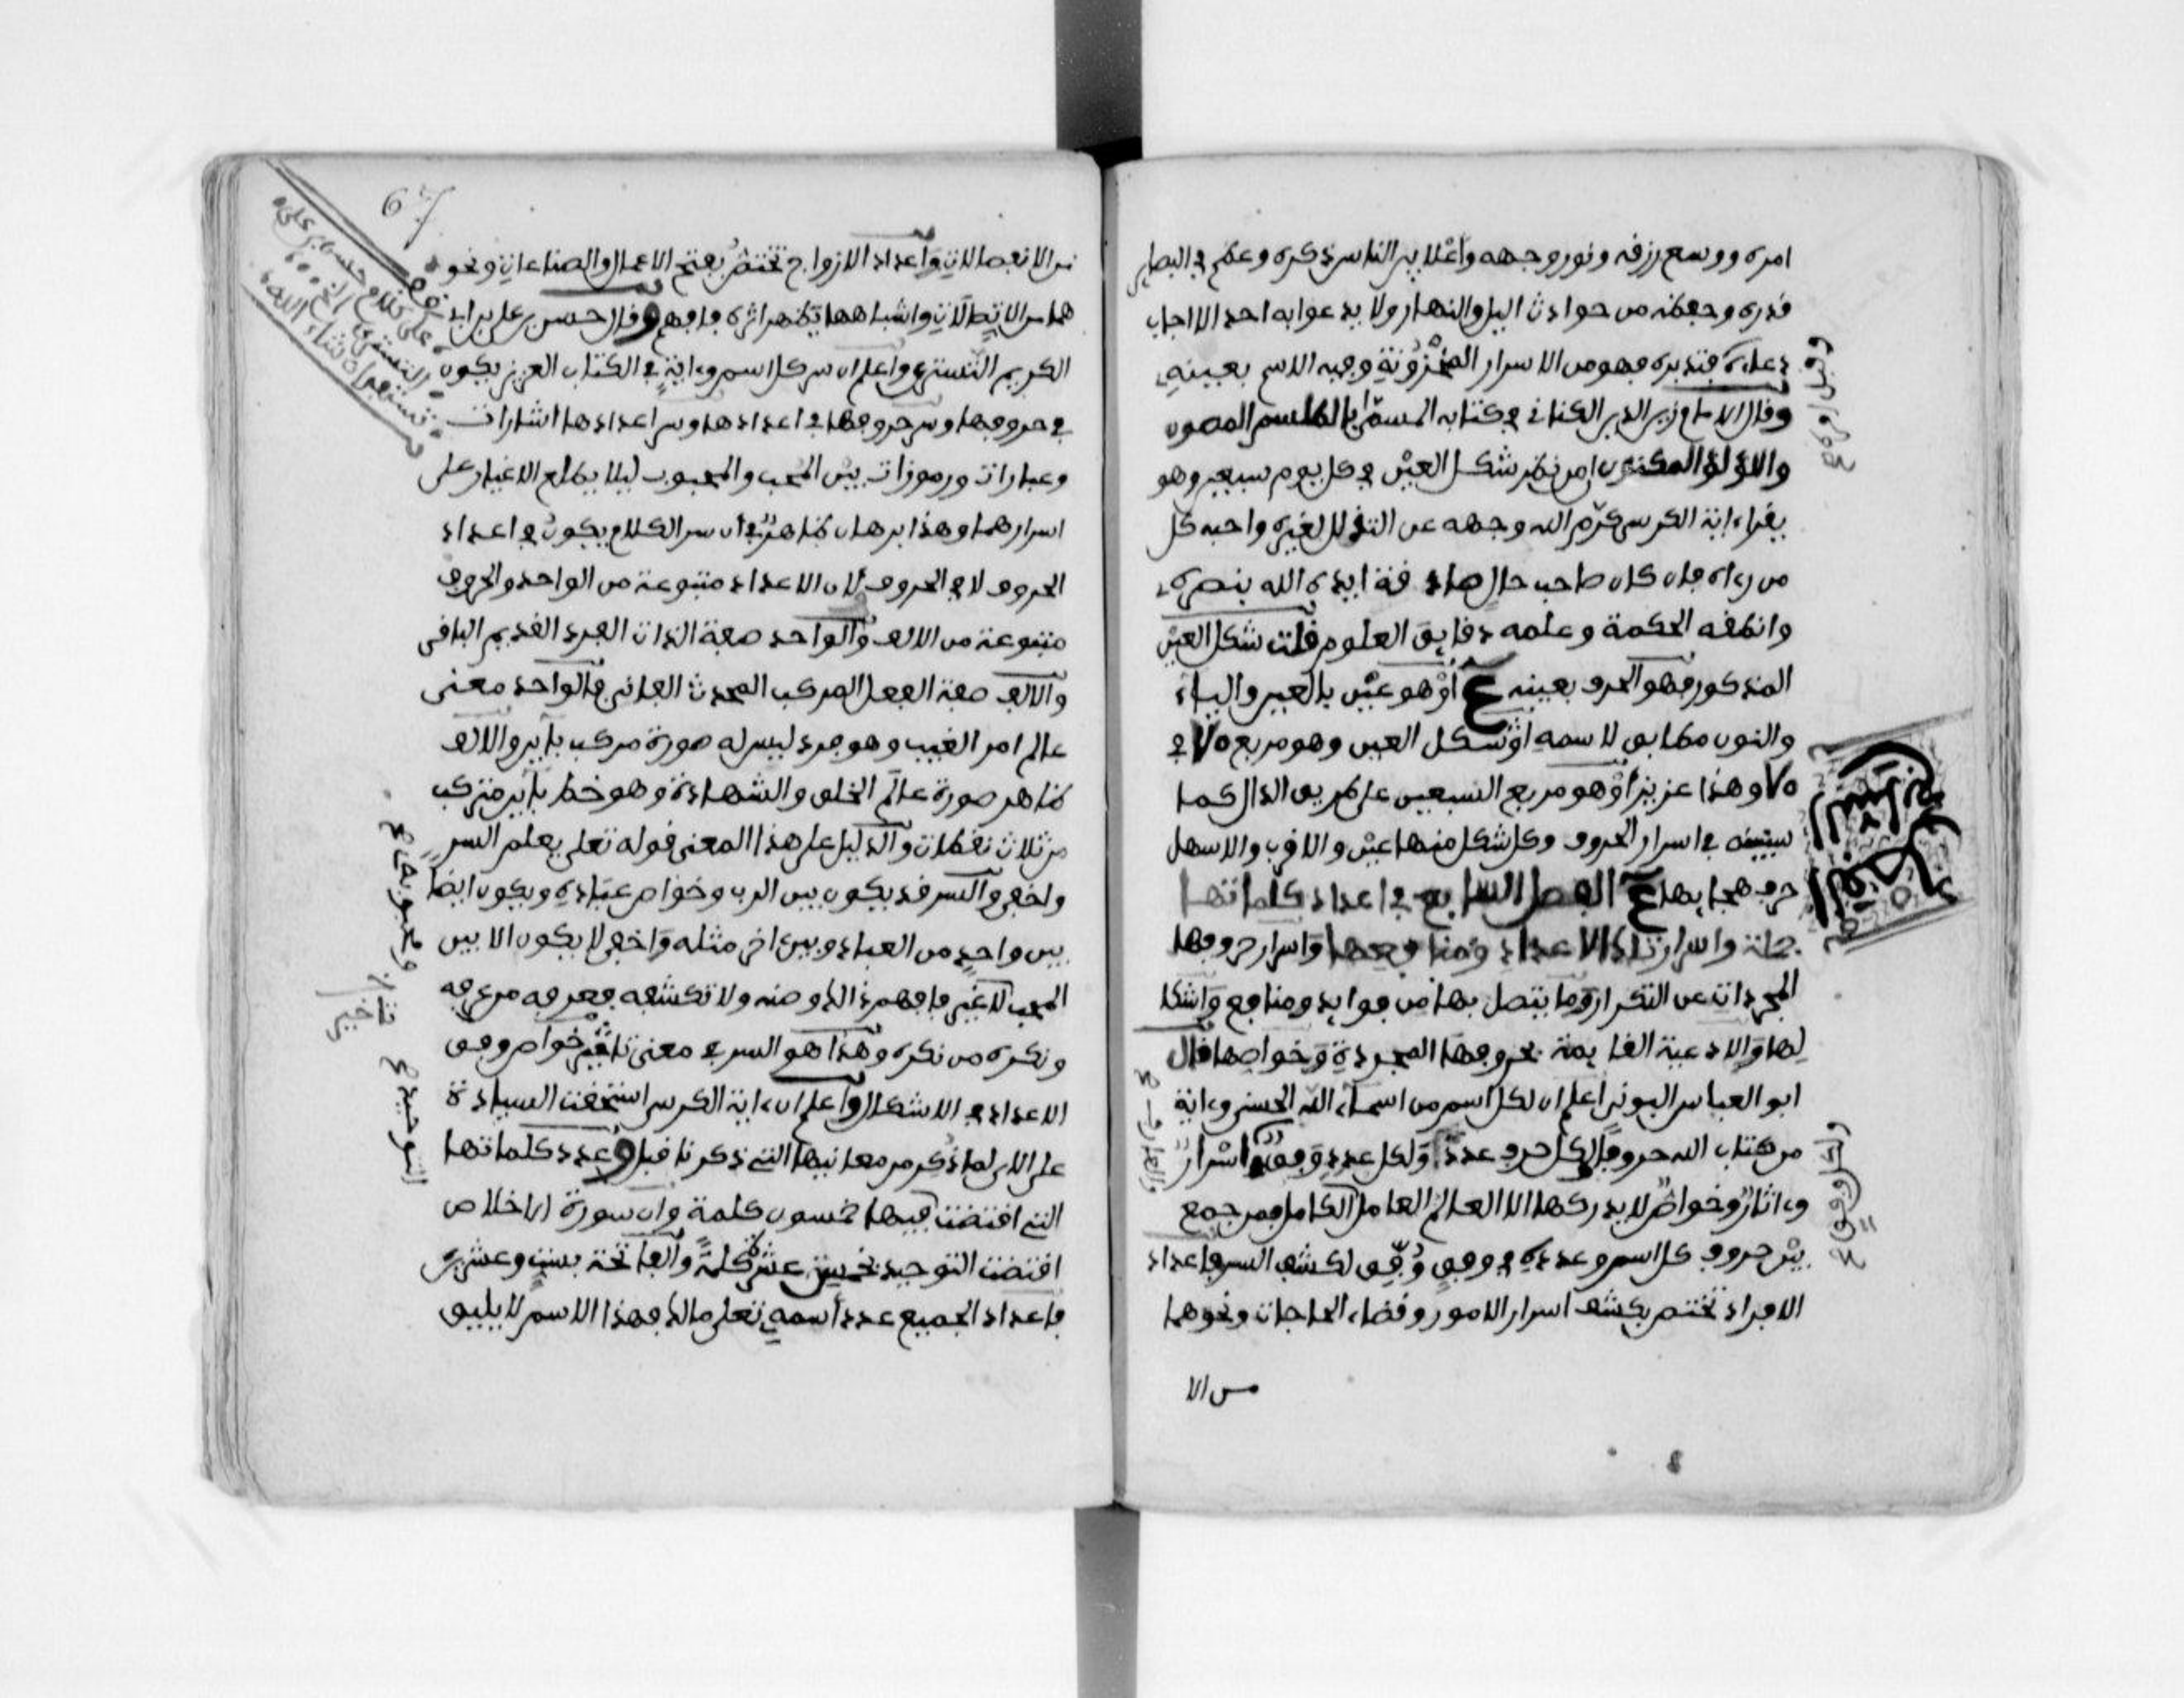 امره ووسع رزقه ونور وجهه واعلا بين الناس ذكره وعظم في البصاير
قدره وحفظه من حوادث اليل والنهار ولا يدعوا به احد الا اجاب
دعاءه فتدبره فهو من الاسرار المخزونة وفيه الاسم بعينه
وقال الامام زين الدين الكناني في كتابه المسمى بالطلسم المصون
واللؤلؤ المكنون من نظر شكل العين في كل يوم سبعين وهو
يقراء اية الكرسي كرم الله وجهه عن التذلل لغيره واحبه كل
من رءاه فان كان صاحب حال صادقة ايده الله بنصره
وانطقه الحكمة وعلمه دقايق العلوم قلت شكل العين
المذكور فهو الحرف بعينه ع او هو عين بالعين والياء
والنون مطابق لاسمه او شكل العين وهو مربع ٧٥ في
٧٥ وهذا عزيز او هو مربع السبعين على طريق الدال كما
سيبينه في اسرار الحروف وكل شكل منها عين والاقرب والاسهل
حرف هجايها ع الفصل السابع في اعداد كلماتها
جملة واسرار تلك الاعداد ومنافعها واسرار حروفها
المجردات عن التكرار وما يتصل بها من فوايد ومنافع واشكا
لها والادعية القايمة بحروفها المجردة وخواصها قال
ابو العباس البوني اعلم ان لكل اسم من اسماء الله الحسنى وءاية
من كتاب الله حروفا لكل حرف عدد ولكل عدد وفق اسرار
وءاثار وخواص لا يدركها الا العالم العامل الكامل فمن جمع
بين حروف كل اسم وعدده في وفق وفق لكشف السر فاعداد
الافراد تختص بكشف اسرار الامور وقضاء الحاجات ونحوها
من الا
67
من الانفصالات واعداد الازواج تختص بفتح الاعمال والصناعات ونحو
هما من الاتصالات واشباهها تظهر اثره فافهم وقال حسن بن علي بن ابد
الكريم التستري واعلم ان سر كل اسم وءاية في الكتاب العزيز يكون
في حروفها وسر حروفها في اعدادها وسر اعدادها اشارات
وعبارات ورموزات بين المحب والمحبوب ليلا يطلع الاغيار على
اسرارهما وهذا برهان ظاهر في ان سر الكلام يكون في اعداد
الحروف لا في الحروف لان الاعداد متنوعة من الواحد والحروف
متنوعة من الالف والواحد صفة الذات الفرد القديم الباقي
والالف صفة الفعل المركب المحدث الفاني فالواحد معنى
عالم امر الغيب وهو فرد ليس له صورة مركب بابير والالف
ظاهر صورة عالم الخلق والشهادة وهو خط بابير متركب
من ثلاث نقطات والدليل على هذا المعنى قوله تعلى يعلم السر
واخفى والسر قد يكون بين الرب وخواص عباده ويكون ايضا
بين واحد من العباد وبين اخر مثله واخفى لا يكون الا بين
المحب لاغير فافهم ذالك وصنه ولا تكشفه فعرفه من عرفه
ونكره من نكره وهذا هو السر في معنى تاثير خواص وفق
الاعداد في الاشكال واعلم ان ءاية الكرسي استحقت السيادة
على الاى لما ذكر من معانيها التي ذكرنا قبل وعدد كلماتها
التي اقتضت فيها خمسون كلمة وان سورة الاخلاص
اقتضت التوحيد بخمس عشر كلمة والفاتحة بست وعشرين
فاعداد الجميع عدد اسمه تعلى مالك فهذا الاسم لا يليق